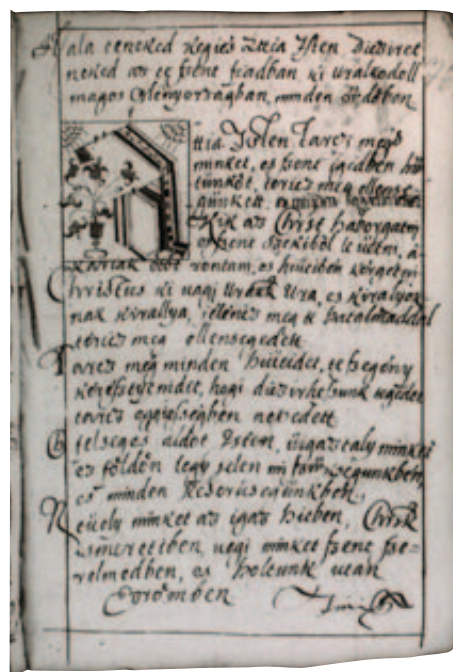 Hala teneked kegies Attia Isten Dicsiret
neked az te szent fiadban ki uralkodol
magos menyorszagban, minden üdöben
Attia Isten tarcz megh
minket, es szent igedben hü
tünköt, töries meg ellense
günkett,
Kik az Christ haborgatni
szent szekiböl le ütni, a-
rontani, es hüveiben kergetni
Christus ki vagi urak Ura, es kiralyok-
nak kirallya, ielencz meg te hatalmaddal
töries meg ellensegedett
Tarcz meg minden hüveidet, te szegény
keresztyenidet, hogi dicsirhessunk tegedet
tarcz eggiessegben nevedett
felseges aldot Isten, vigasztaly minket
es földön legy velen mi
es minden keserüsegünkben,
Nevely minket az igaz hitben, Christ
ismeretiben, vegi minket szent sze=
relmedben, es holtunk utan
Örömben